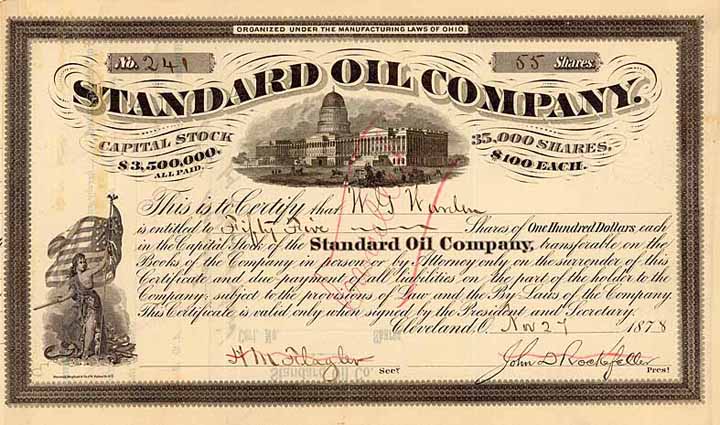 ORGANIZED UNDER THE MANUFACTURING LAWS OF OHIO.
No. 241
55 Shares
STANDARD OIL COMPANY.
CAPITAL STOCK
$3,500,000.
ALL PAID.
35,000 SHARES,
$100 EACH.
This is to Certify that W G Warden
is entitled to Fifty Five Shares of One Hundred Dollars each
in the Capital Stock of the Standard Oil Company, transferable on the
Books of the Company in person or by Attorney only on the surrender of this
Certificate and due payment of all liabilities on the part of the holder to the
Company: subject to the provisions of Law and the By-Laws of the Company.
This Certificate is valid only when signed by the President and Secretary.
Cleveland, O. Nov 27 1878
H M Flagler Secy
John D Rockefeller Prest